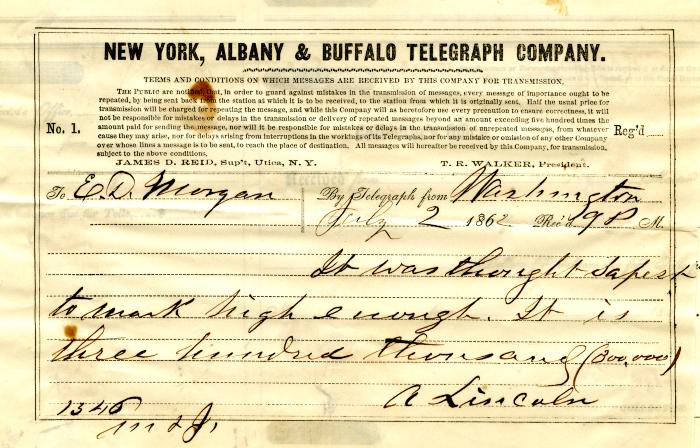 NEW YORK, ALBANY & BUFFALO TELEGRAPH COMPANY.
TERMS AND CONDITIONS ON WHICH MESSAGES ARE RECEIVED BY THIS COMPANY FOR TRANSMISSION.
THE PUBLIC are notified, that, in order to guard against mistakes in the transmission of messages, every message of importance ought to be
repeated, by being sent back from the station at which it is to be received, to the station from which it is originally sent. Half the usual price for
transmission will be charged for repeating the message, and while this Company will as heretofore use every precaution to ensure correctness, it will
not be responsible for mistakes or delays in the transmission or delivery of repeated messages beyond an amount exceeding five hundred times the
amount paid for sending the message, nor will it be responsible for mistakes or delays in the transmission of unrepeated messages, from whatever
cause they may arise, nor for delays arising from interruptions in the workings of its Telegraphs, nor for any mistake or omission of any other Company
over whose lines a message is to be sent, to reach the place of destination. All messages will hereafter be received by this Company, for transmission,
subject to the above conditions.
No. 1.
Reg'd
JAMES D. REID, Sup't, Utica, N. Y. T. R. WALKER, President.
To E. D. Morgan By Telegraph from Washington
July 2 1862 Rec'd, 9 P M.
It was thought safest
to mark high enough. It is
three hundred thousand (300,000)
A Lincoln
1346